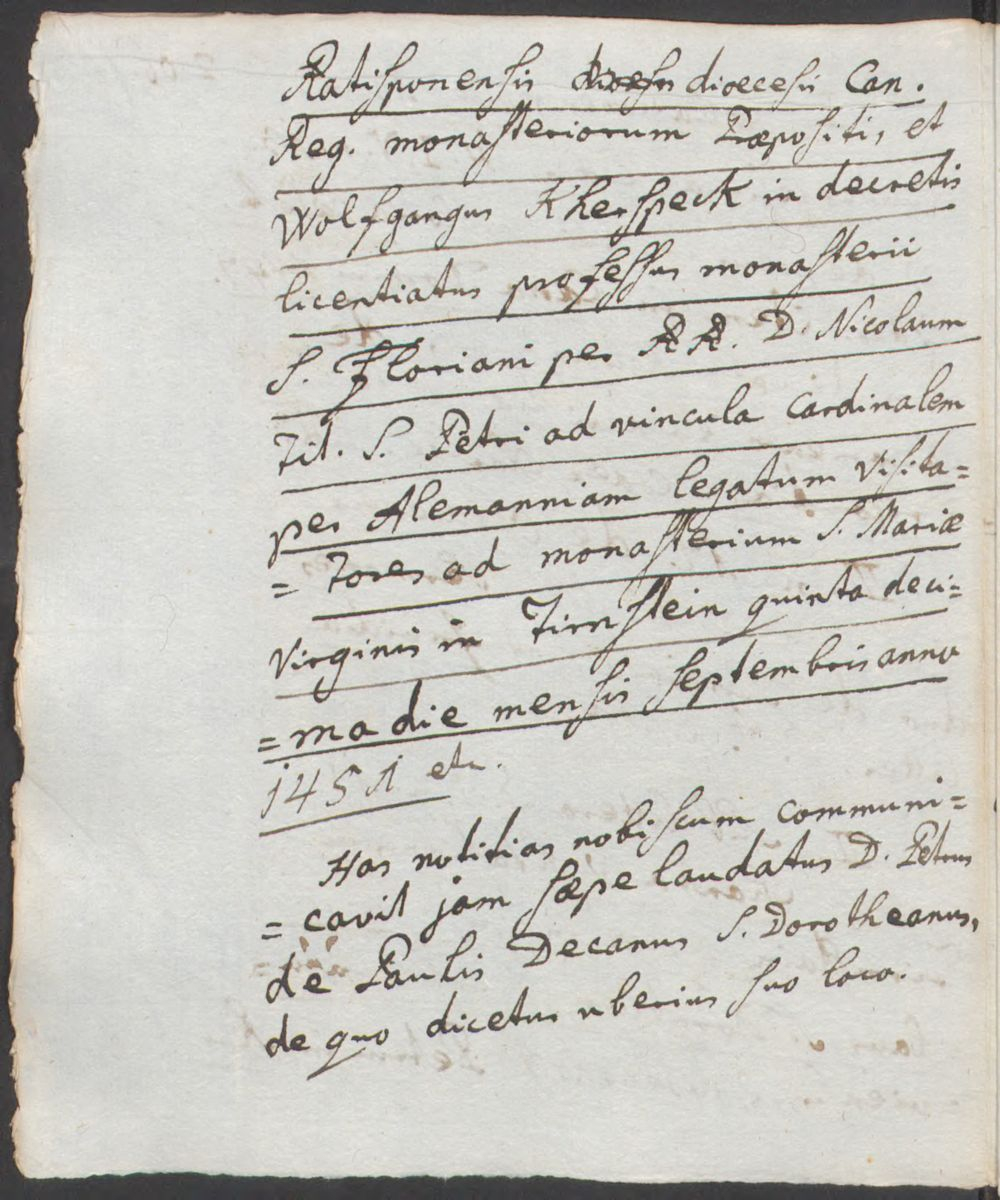 Ratisponensis dioecesis Can.
Reg. monasteriorum Præpositi, et
Wolfgangus Kherspeck in decretis
licentiatus professus monasterii
S. Floriani per RR. D. Nicolaum
Tit. S. Petri ad vincula Cardinalem
per Alemanniam legatum Visita=
= tores ad monasterium S. Mariæ
Virginis in Tirnstein quinta deci=
= ma die mensis septembris anno
1451 etc.
Has notitias nobiscum communi=
= cavit jam sæpe laudatus D. Petrus
de Paulis Decanus S. Dorotheanus,
de quo dicetur uberius suo loco.